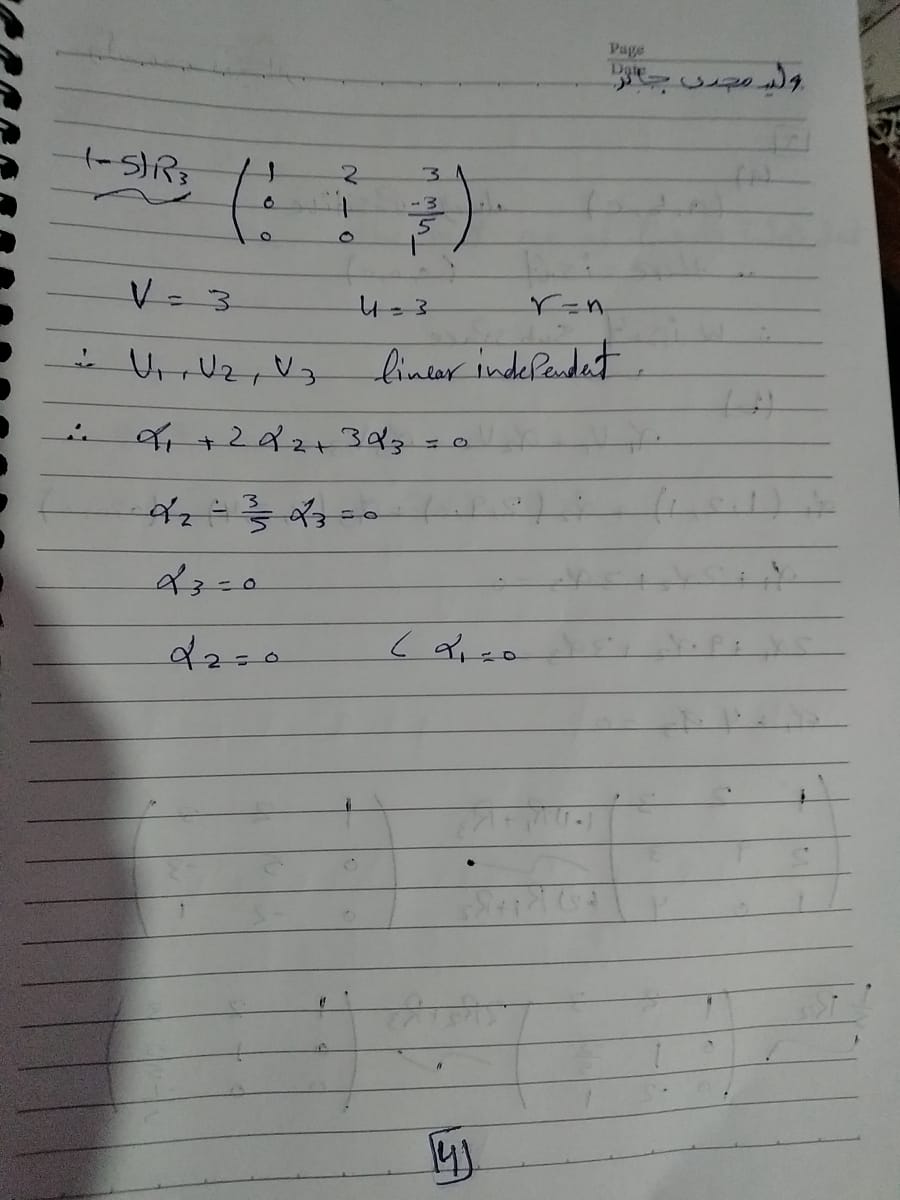 Page
Date وليد مجدى جابر
(-5)R3 ( 1 2 3
0 1 -3/5
0 0 1 )
V = 3 U = 3 r = n
∴ U1, U2, V3 linear independent.
∴ α1 + 2α2 + 3α3 = 0
α2 - 3/5 α3 = 0
α3 = 0
α2 = 0 ( α1 = 0
[4]